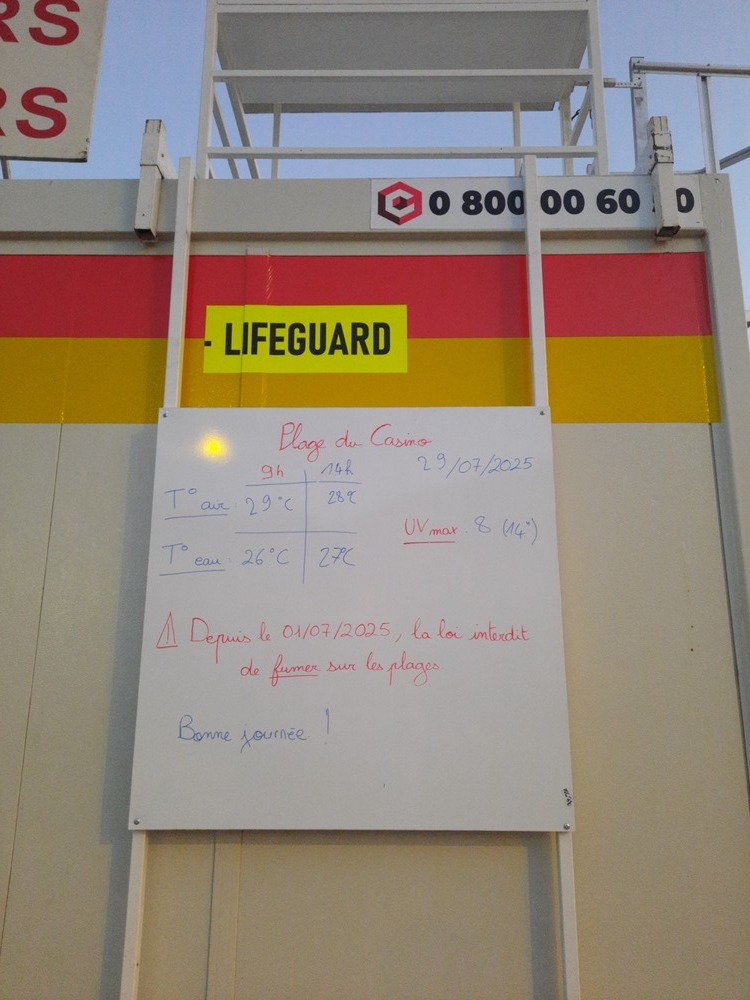 RS
RS
0 800 00 60 0
- LIFEGUARD
Plage du Casino
29/07/2025
9h 14h
T° air: 29°C 28°C
UV max: 8 (14°)
T° eau: 26°C 27°C
⚠ Depuis le 01/07/2025, la loi interdit
de fumer sur les plages.
Bonne journée !